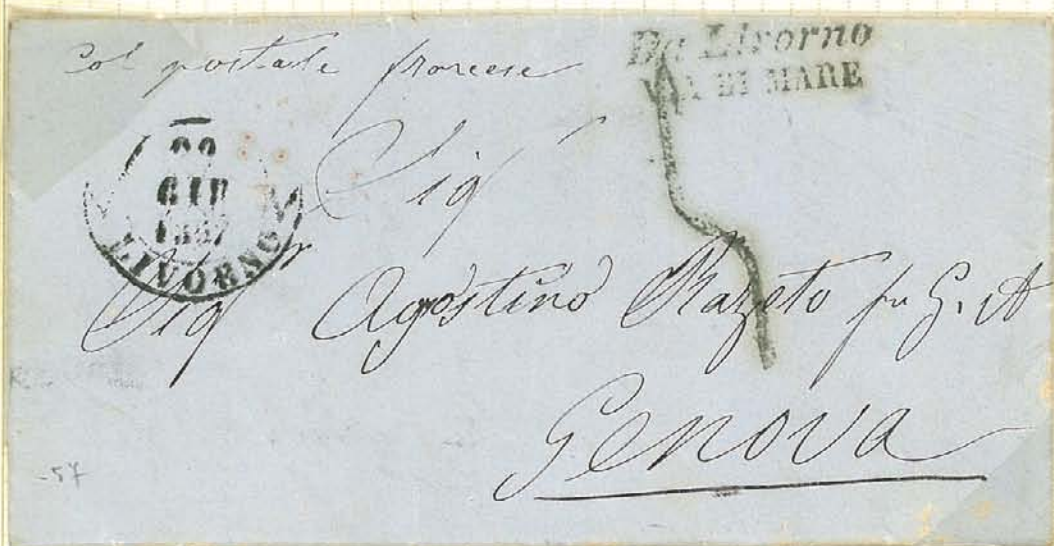 Col postale francese
Da Livorno
VIA DI MARE
GIU
1857
LIVORNO
Sigr
Sigr Agostino Razeto fu G. A
Genova
-57